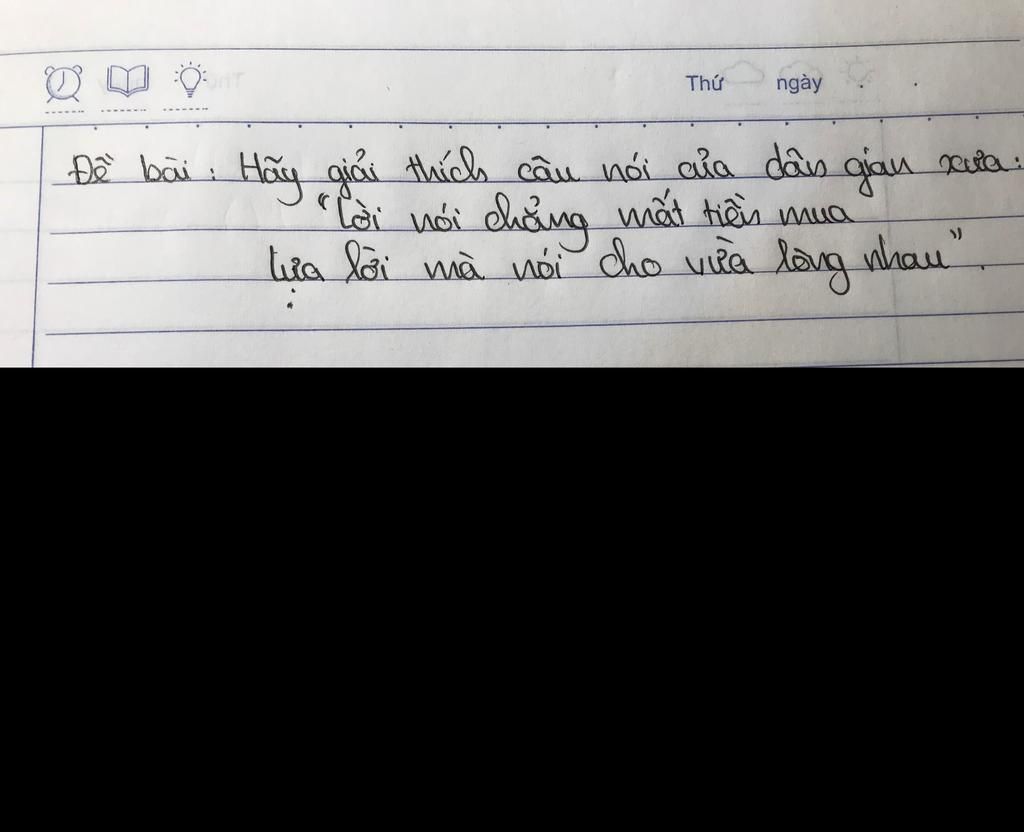 Thứ ngày
Đề bài : Hãy giải thích câu nói của dân gian xưa :
"Lời nói chẳng mất tiền mua
Lựa lời mà nói cho vừa lòng nhau".